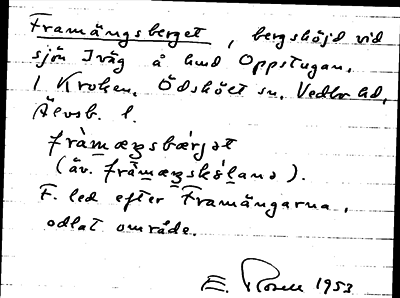 Framängsberget, bergshöjd vid
sjön Iväg å hmd Oppstugan,
1 Kroken, Ödskölt sn, Vedbo hd,
Älvsb. l.
fràmæŋsbærjət
(äv. fràmæŋskáland).
F. led efter Framängarna,
odlat område.
E. Rosell 1953